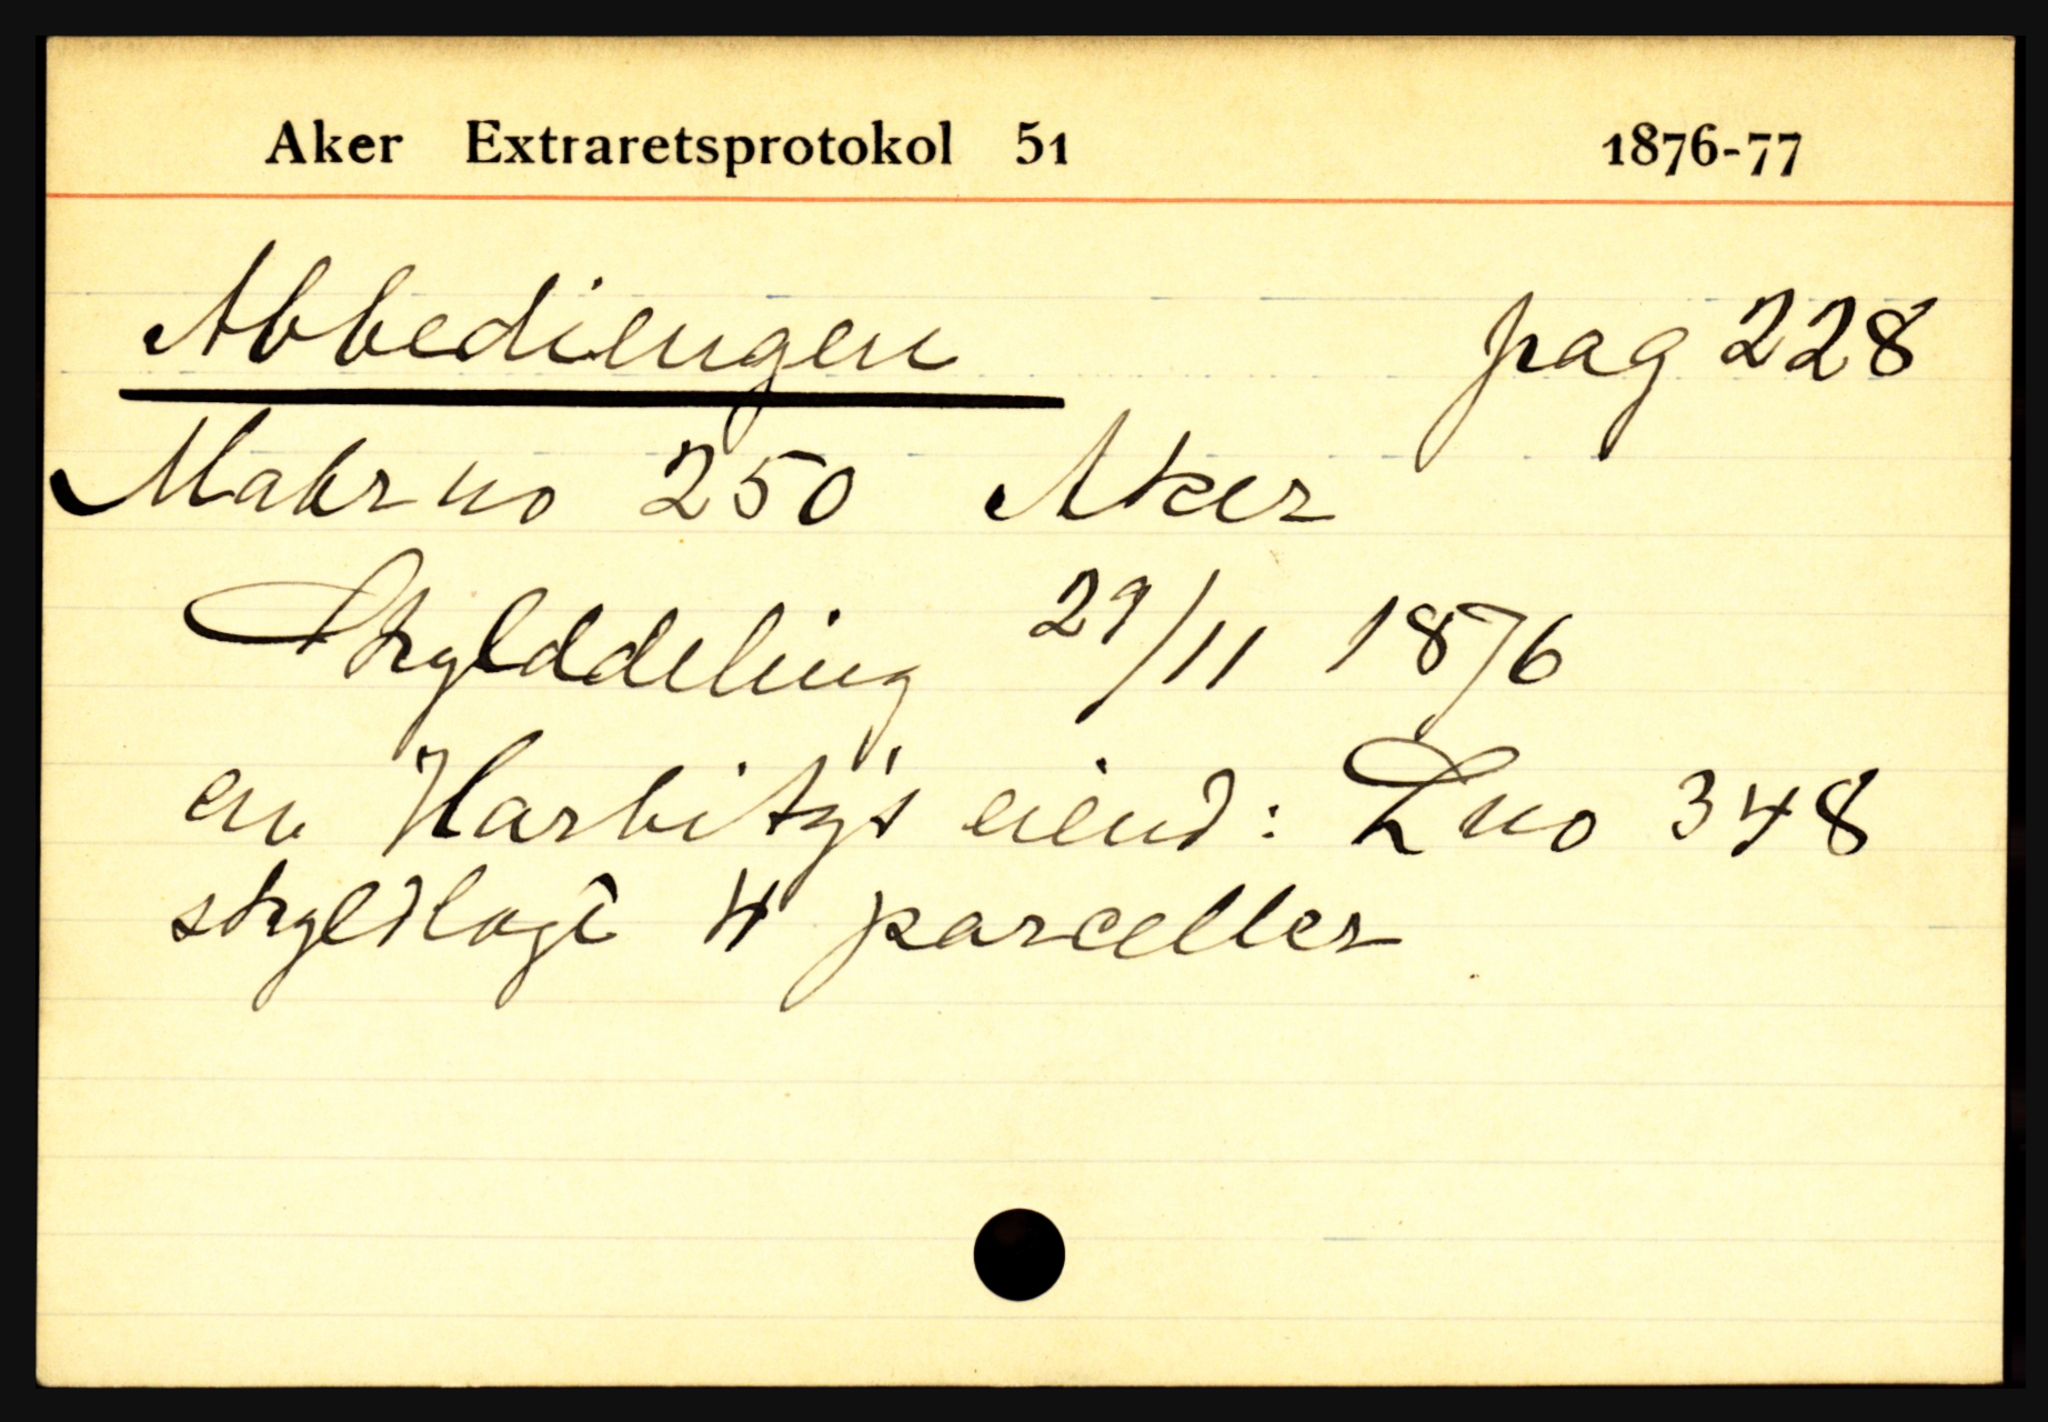 Aker Extraretsprotokol 51 1876-77
Abbediengen pag 228
Matr no 250 Aker
Skylddeling 29/11 1876
en Harbitz's eiend: L no 348
skyldlagt 4 parceller